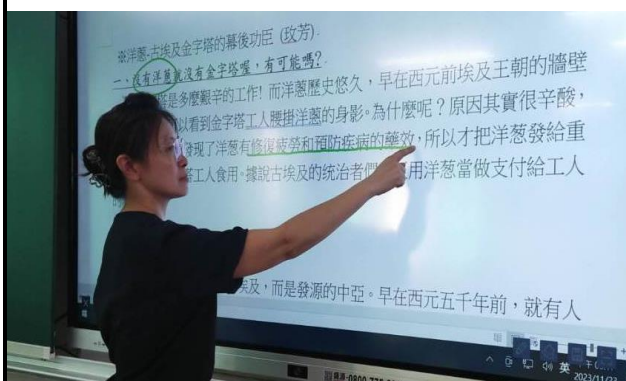 ※洋蔥-古埃及金字塔的幕後功臣 (玫芳)
一、沒有洋蔥就沒有金字塔喔,有可能嗎?
是多麼艱辛的工作! 而洋蔥歷史悠久,早在西元前埃及王朝的牆壁
以看到金字塔工人腰掛洋蔥的身影。為什麼呢?原因其實很辛酸,
發現了洋蔥有修復疲勞和預防疾病的藥效,所以才把洋蔥發給重
工人食用。據說古埃及的統治者們 用洋蔥當做支付給工人
埃及,而是發源的中亞。早在西元五千年前,就有人
英
2023/11/22